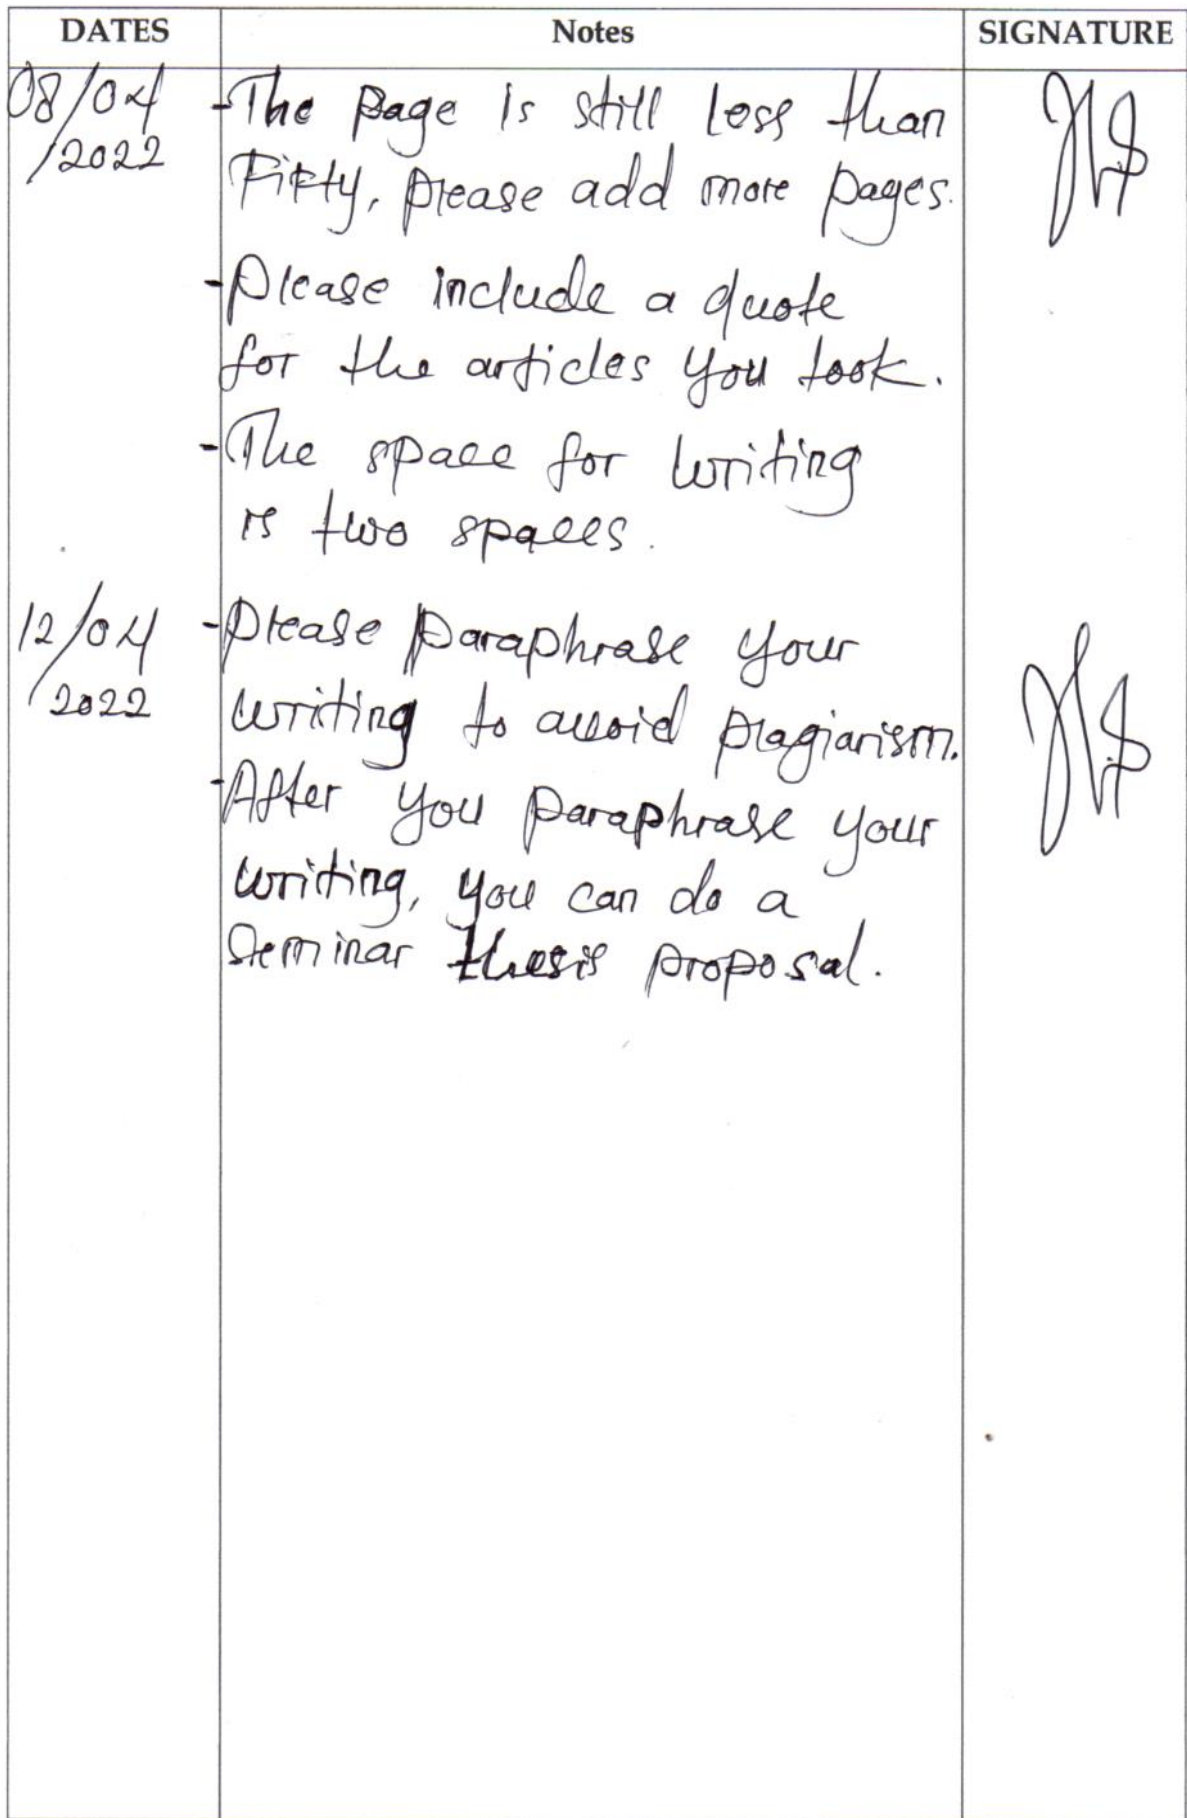 DATES Notes SIGNATURE
08/04 -The page is still less than
/2022 Fifty, please add more pages.
-Please include a quote
for the articles you took.
-The space for writing
is two spaces.
12/04 -Please paraphrase your
/2022 writing to avoid plagiarism.
-After you paraphrase your
writing, you can do a
Seminar thesis proposal.